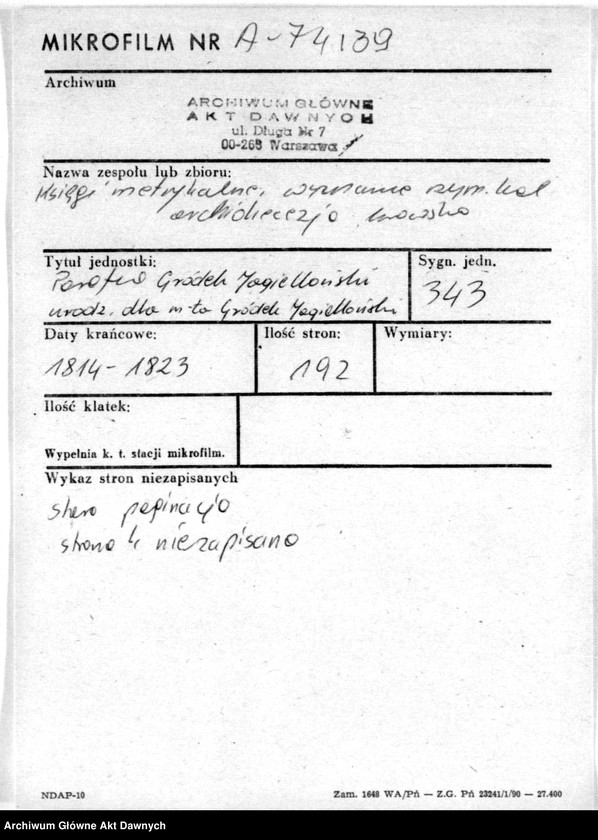 MIKROFILM NR A-74139
Archiwum
ARCHIWUM GŁÓWNE
AKT DAWNYCH
ul. Długa Nr 7
00-263 Warszawa
Nazwa zespołu lub zbioru:
Księgi metrykalne, wyznanie rzym. kat
archidiecezja lwowska
Tytuł jednostki:
Parafia Gródek Jagielloński
urodz. dla m-ta Gródek Jagielloński
Sygn. jedn.
343
Daty krańcowe:
1814-1823
Ilość stron:
192
Wymiary:
Ilość klatek:
Wypełnia k. t. stacji mikrofilm.
Wykaz stron niezapisanych
stara paginacja
strona 4 niezapisana
NDAP-10
Zam. 1648 WA/Pń — Z.G. Pń 23241/1/90 — 27.400
Archiwum Główne Akt Dawnych